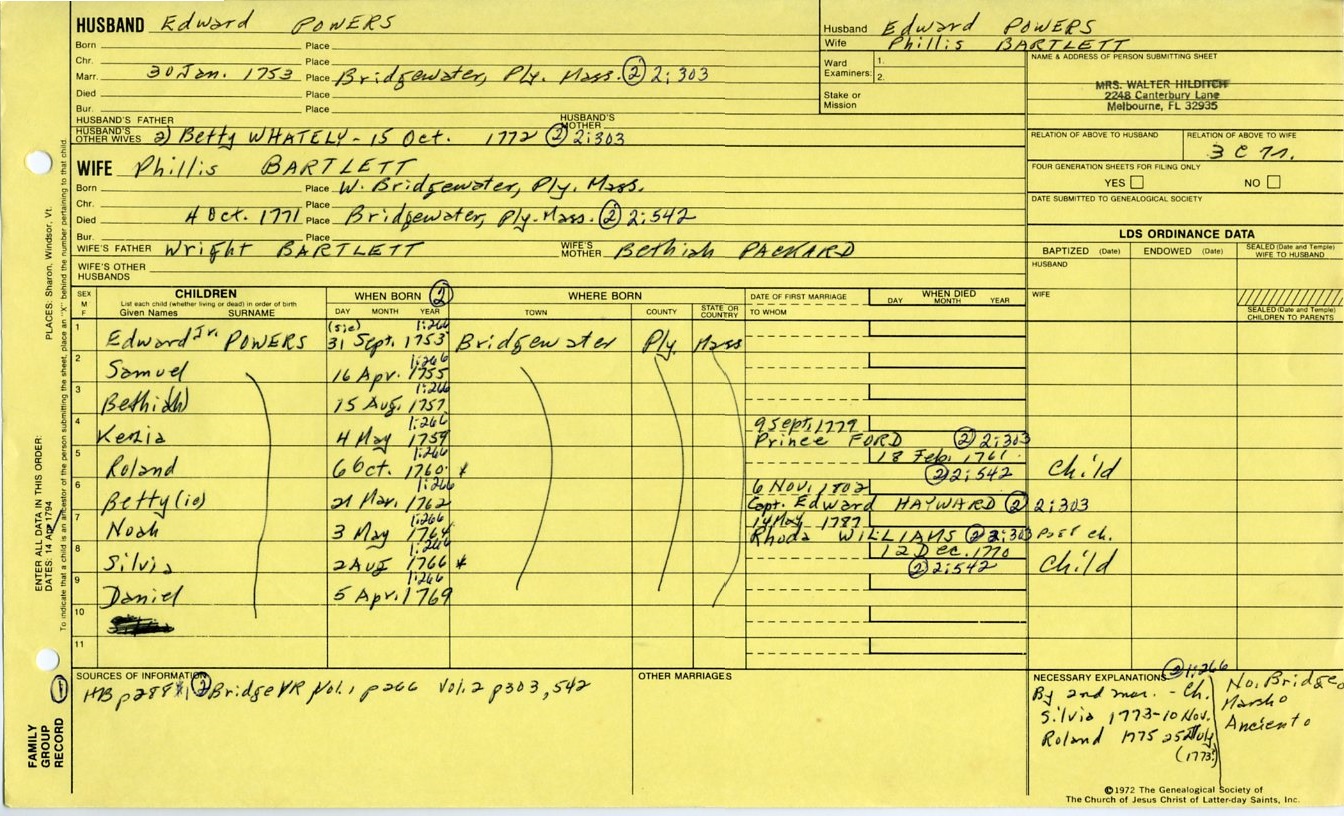 HUSBAND Edward POWERS
Born Place
Chr. Place
Marr. 30 Jan. 1753 Place Bridgewater, Ply. Mass. (2) 2:303
Died Place
Bur. Place
HUSBAND'S FATHER HUSBAND'S MOTHER
HUSBAND'S OTHER WIVES 2) Betty WHATELY - 15 Oct. 1772 (2) 2:303
WIFE Phillis BARTLETT
Born Place W. Bridgewater, Ply. Mass.
Chr. Place
Died 4 Oct. 1771 Place Bridgewater, Ply. Mass. (2) 2:542
Bur. Place
WIFE'S FATHER Wright BARTLETT WIFE'S MOTHER Bethiah PACKARD
WIFE'S OTHER HUSBANDS
Husband Edward POWERS
Wife Phillis BARTLETT
Ward Examiners: 1.
2.
Stake or Mission
NAME & ADDRESS OF PERSON SUBMITTING SHEET
MRS. WALTER HILDITCH
2248 Canterbury Lane
Melbourne, FL 32935
RELATION OF ABOVE TO HUSBAND RELATION OF ABOVE TO WIFE
FOUR GENERATION SHEETS FOR FILING ONLY
YES NO
DATE SUBMITTED TO GENEALOGICAL SOCIETY
LDS ORDINANCE DATA
BAPTIZED (Date) ENDOWED (Date) SEALED (Date and Temple) WIFE TO HUSBAND
HUSBAND
WIFE
SEALED (Date and Temple) CHILDREN TO PARENTS
SEX M F CHILDREN WHEN BORN (2) WHERE BORN DATE OF FIRST MARRIAGE WHEN DIED
List each child (whether living or dead) in order of birth
Given Names SURNAME DAY MONTH YEAR TOWN COUNTY STATE OR COUNTRY TO WHOM DAY MONTH YEAR
1 Edward Jr. POWERS (sic) 31 Sept. 1753 1:266 Bridgewater Ply. Mass
2 Samuel 16 Apr. 1755 1:266
3 Bethi(ah) 15 Aug. 1757 1:266
4 Kezia 4 May 1759 1:266 9 Sept. 1779
Prince FORD (2) 2:303
5 Roland 6 Oct. 1760 1:266 * 18 Feb. 1761
(2) 2:542 Child
6 Betty (ie) 21 Mar. 1762 1:266 6 Nov. 1802
Capt. Edward HAYWARD (2) 2:303
7 Noah 3 May 1764 1:266 14 May 1787
Rhoda WILLIAMS (2) 2:303 ch.
8 Silvia 2 Aug 1766 1:266 * 12 Dec. 1770
(2) 2:542 Child
9 Daniel 5 Apr. 1769 1:266
10
11
SOURCES OF INFORMATION
HB p288 (2) Bridge VR Vol. 1 p266 Vol. 2 p303, 542
OTHER MARRIAGES
NECESSARY EXPLANATIONS (2) 1:266
By 2nd mar. - Ch.
Silvia 1773 - 10 Nov.
Roland 1775 25 July
(1773)
No. Bridge
©1972 The Genealogical Society of
The Church of Jesus Christ of Latter-day Saints, Inc.
PLACES: Sharon, Windsor, Vt.
To indicate that a child is an ancestor of the person submitting the sheet, place an "X" behind the number pertaining to that child.
ENTER ALL DATA IN THIS ORDER:
DATES: 14 Apr 1794
(1)
FAMILY GROUP RECORD